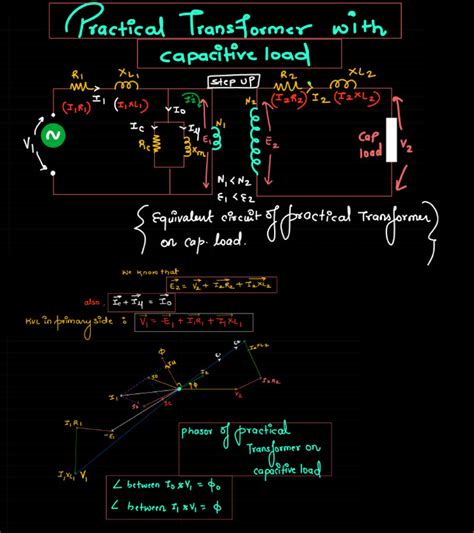 Practical Transformer with
capacitive load
step up
R1 XL1 R2 XL2
I1 I2
(I1R1) (I1XL1) (I2R2) (I2XL2)
I0 I2'
Ic Iμ
Rc Xm
N1 N2
E1 E2
V1 V2
Cap
load
N1 < N2
E1 < E2
{ Equivalent circuit of practical Transformer
on cap. load. }
we know that
E2 = V2 + I2R2 + I2XL2
also, Ic + Iμ = I0
KVL in primary side is V1 = -E1 + I1R1 + I1XL1
ϕ
I2XL2
Iμ
I2
ϕ
I2R2
V2
I1
Ic
I1R1
-E1
I1XL1 V1
phasor of practical
Transformer on
capacitive load
∠ between I0 & V1 = ϕ0
∠ between I1 & V1 = ϕ